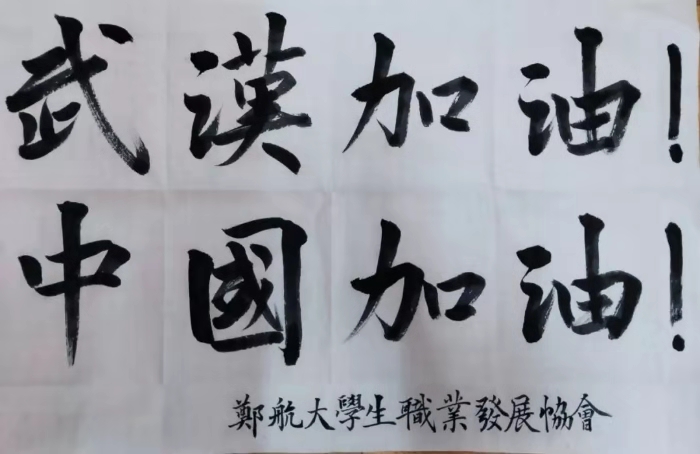 武漢加油!
中國加油!
鄭航大學生職業發展協會